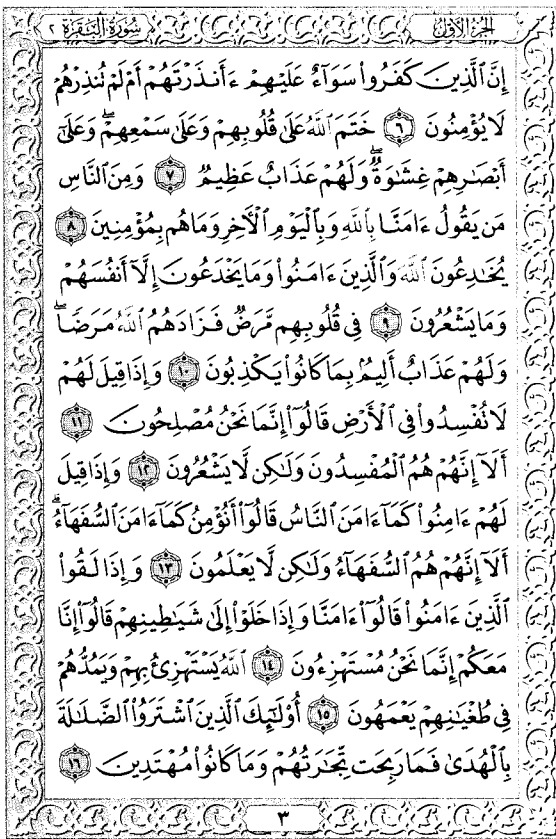 الجزء الأول سورة البقرة ٢
إِنَّ ٱلَّذِينَ كَفَرُوا۟ سَوَآءٌ عَلَيْهِمْ ءَأَنذَرْتَهُمْ أَمْ لَمْ تُنذِرْهُمْ
لَا يُؤْمِنُونَ ٦ خَتَمَ ٱللَّهُ عَلَىٰ قُلُوبِهِمْ وَعَلَىٰ سَمْعِهِمْ ۖ وَعَلَىٰٓ
أَبْصَٰرِهِمْ غِشَٰوَةٌ ۖ وَلَهُمْ عَذَابٌ عَظِيمٌ ٧ وَمِنَ ٱلنَّاسِ
مَن يَقُولُ ءَامَنَّا بِٱللَّهِ وَبِٱلْيَوْمِ ٱلْءَاخِرِ وَمَا هُم بِمُؤْمِنِينَ ٨
يُخَٰدِعُونَ ٱللَّهَ وَٱلَّذِينَ ءَامَنُوا۟ وَمَا يَخْدَعُونَ إِلَّآ أَنفُسَهُمْ
وَمَا يَشْعُرُونَ ٩ فِى قُلُوبِهِم مَّرَضٌ فَزَادَهُمُ ٱللَّهُ مَرَضًا ۖ
وَلَهُمْ عَذَابٌ أَلِيمٌۢ بِمَا كَانُوا۟ يَكْذِبُونَ ١٠ وَإِذَا قِيلَ لَهُمْ
لَا تُفْسِدُوا۟ فِى ٱلْأَرْضِ قَالُوٓا۟ إِنَّمَا نَحْنُ مُصْلِحُونَ ١١
أَلَآ إِنَّهُمْ هُمُ ٱلْمُفْسِدُونَ وَلَٰكِن لَّا يَشْعُرُونَ ١٢ وَإِذَا قِيلَ
لَهُمْ ءَامِنُوا۟ كَمَآ ءَامَنَ ٱلنَّاسُ قَالُوٓا۟ أَنُؤْمِنُ كَمَآ ءَامَنَ ٱلسُّفَهَآءُ ۗ
أَلَآ إِنَّهُمْ هُمُ ٱلسُّفَهَآءُ وَلَٰكِن لَّا يَعْلَمُونَ ١٣ وَإِذَا لَقُوا۟
ٱلَّذِينَ ءَامَنُوا۟ قَالُوٓا۟ ءَامَنَّا وَإِذَا خَلَوْا۟ إِلَىٰ شَيَٰطِينِهِمْ قَالُوٓا۟ إِنَّا
مَعَكُمْ إِنَّمَا نَحْنُ مُسْتَهْزِءُونَ ١٤ ٱللَّهُ يَسْتَهْزِئُ بِهِمْ وَيَمُدُّهُمْ
فِى طُغْيَٰنِهِمْ يَعْمَهُونَ ١٥ أُو۟لَٰٓئِكَ ٱلَّذِينَ ٱشْتَرَوُا۟ ٱلضَّلَٰلَةَ
بِٱلْهُدَىٰ فَمَا رَبِحَت تِّجَٰرَتُهُمْ وَمَا كَانُوا۟ مُهْتَدِينَ ١٦
٣